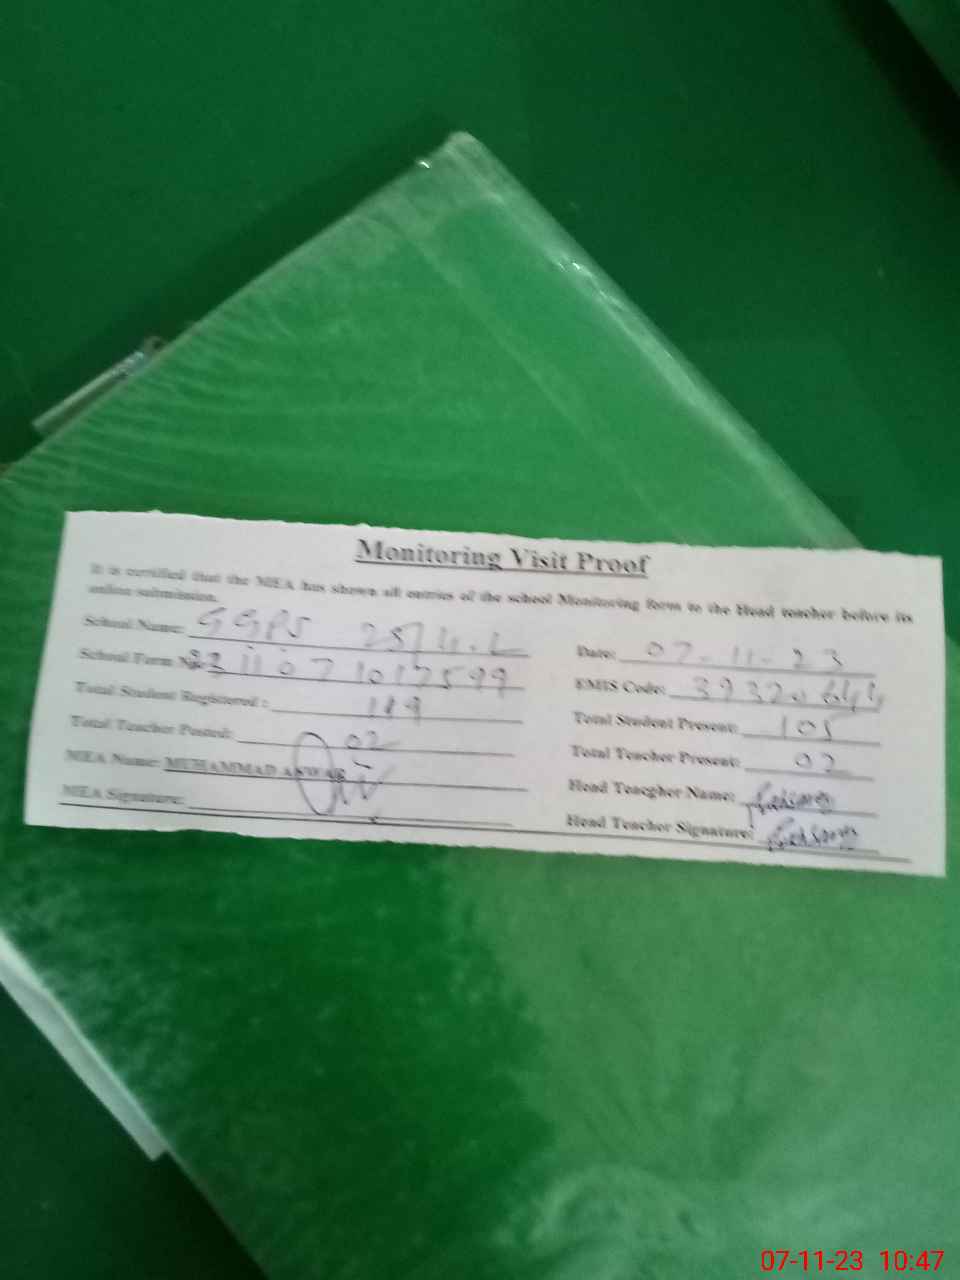 Monitoring Visit Proof
It is certified that the MEA has shown all entries of the school Monitoring form to the Head teacher before its
online submission.
School Name: GGPS 25/4.L
Date: 07-11-23
School Form No
EMIS Code:
Total Student Registered : 119
Total Student Present: 105
Total Teacher Posted: 02
Total Teacher Present: 02
MEA Name: MUHAMMAD ANWAR
Head Teacgher Name:
MEA Signature:
Head Teacher Signature:
07-11-23 10:47